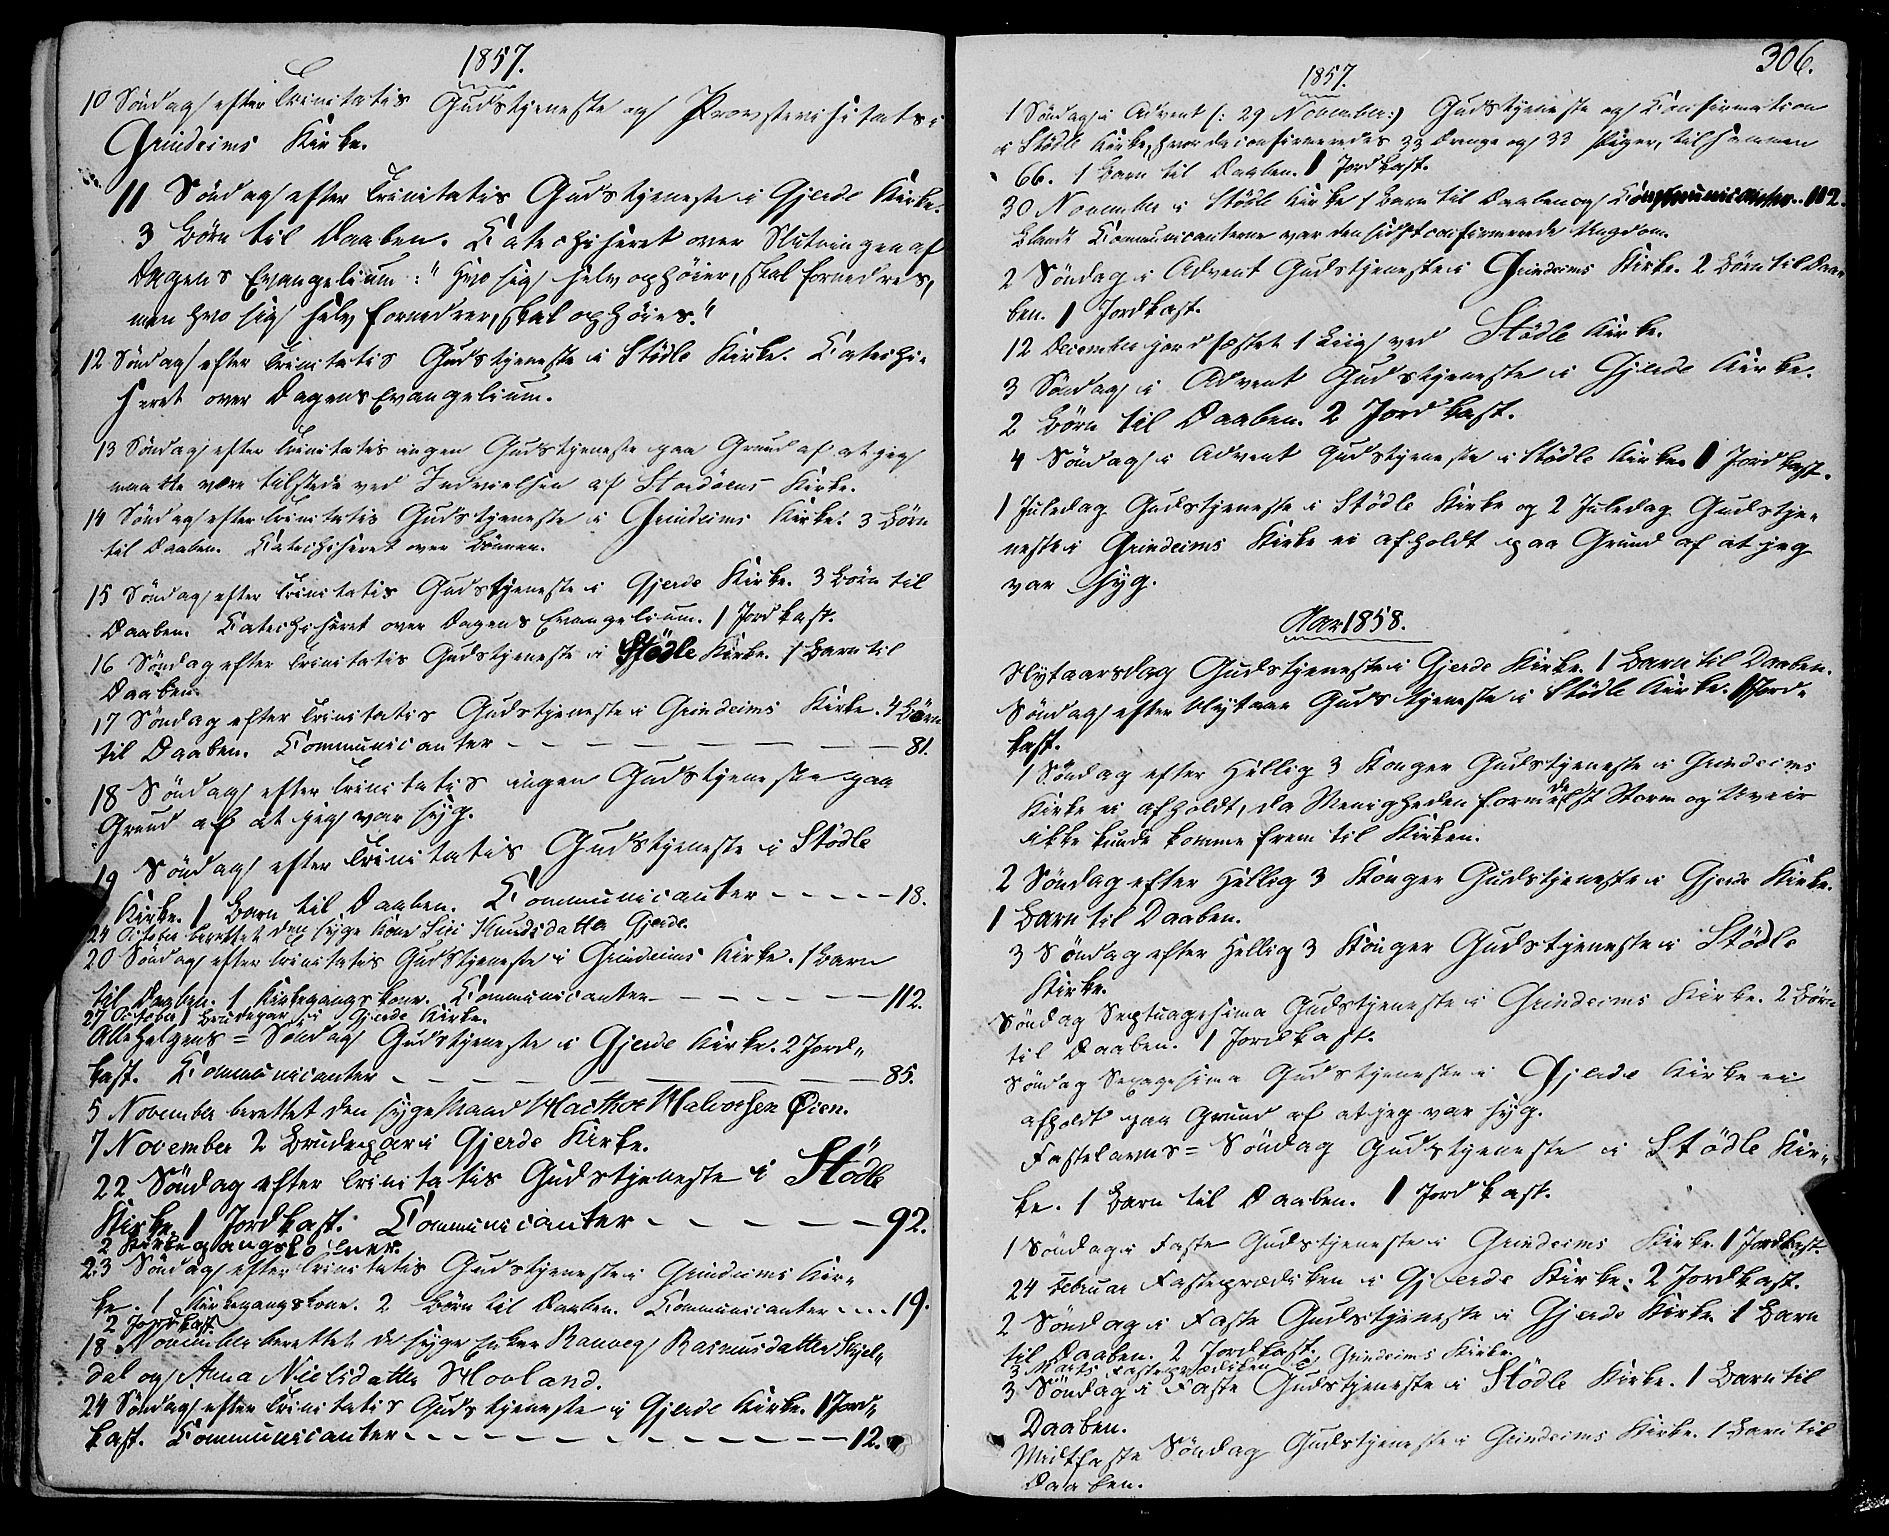 1857.
10 Söndag efter Trinitatis Gudstjeneste og Provstevisitats i
Grindeims Kirke.
11 Söndag efter Trinitatis Gudstjeneste i Gjerde Kirke.
3 Börn til Daaben. Catechiseret over Slutningen af
Dagens Evangelium: "Hvo sig selv ophöier, skal fornedres,
men hvo sig selv fornedrer, skal ophöies."
12 Söndag efter Trinitatis Gudstjeneste i Stödle Kirke. Catechi-
seret over Dagens Evangelium.
13 Söndag efter Trinitatis ingen Gudstjeneste paa Grund af at jeg
maatte være tilstede ved Indvielsen af Stordöens Kirke.
14 Söndag efter Trinitatis Gudstjeneste i Grindeims Kirke. 3 Börn
til Daaben. Catechiseret over Bönnen.
15 Söndag efter Trinitatis Gudstjeneste i Gjerde Kirke. 3 Börn til
Daaben. Catechiseret over Dagens Evangelium. 1 Jordkast.
16 Söndag efter Trinitatis Gudstjeneste i Stödle Kirke. 1 Barn til
Daaben.
17 Söndag efter Trinitatis Gudstjeneste i Grindeims Kirke. 4 Börn
til Daaben. Communicanter - - - - - - - 81.
18 Söndag efter Trinitatis ingen Gudstjeneste paa
Grund af at jeg var syg.
19 Söndag efter Trinitatis Gudstjeneste i Stödle
Kirke. 1 Barn til Daaben. Communicanter - - - - - 18.
24 October berettet den syge Kone Siri Knudsdatter Gjerde.
20 Söndag efter Trinitatis Gudstjeneste i Grindeims Kirke. 1 Barn
til Daaben. 1 Kirkegangskone. Communicanter - - - - - - 112.
27 October 1 Brudepar i Gjerde Kirke.
Allehelgens = Söndag Gudstjeneste i Gjerde Kirke. 2 Jord-
kast. Communicanter - - - - - - - - 85.
5 November berettet den syge Mand Halvor Øien.
7 November 2 Brudepar i Gjerde Kirke.
22 Söndag efter Trinitatis Gudstjeneste i Stödle
Kirke. 1 Jordkast. Communicanter - - - - - 92.
2 Kirkegangskoner.
23 Söndag efter Trinitatis Gudstjeneste i Grindeims Kir-
ke. 1 Kirkegangskone. 2 Börn til Daaben. Communicanter - - - 19.
2 Jordkast
18 November berettet de syge Enker Ranveg Rasmusdatter Skjel-
dal og Anna Nielsdatter Hovland.
24 Söndag efter Trinitatis Gudstjeneste i Gjerde Kirke. 1 Jord-
kast. Communicanter - - - - - - - - - - 12.
306.
1857.
1 Söndag i Advent (: 29 November:) Gudstjeneste og Confirmation
i Stödle Kirke, hvor da confirmeredes 33 Drenge og 33 Piger, tilsammen
66. 1 Barn til Daaben. 1 Jordkast.
30 November i Stödle Kirke 1 Barn til Daaben og Communicanter. 112.
Blandt Communicanterne var den sidst confirmerede Ungdom.
2 Söndag i Advent Gudstjeneste i Grindeims Kirke. 2 Börn til Daa-
ben. 1 Jordkast.
12 December jordfæstet 1 Liig ved Stödle Kirke.
3 Söndag i Advent Gudstjeneste i Gjerde Kirke.
2 Börn til Daaben. 2 Jordkast.
4 Söndag i Advent Gudstjeneste i Stödle Kirke 1 Jordkast.
1 Juledag Gudstjeneste i Stödle Kirke og 2 Juledag Gudstje-
neste i Grindeims Kirke ei afholdt paa Grund af at jeg
var syg.
Aar 1858.
Nytaarsdag Gudstjeneste i Gjerde Kirke. 1 Barn til Daaben.
Söndag efter Nytaar Gudstjeneste i Stödle Kirke. 1 Jord-
kast.
1 Söndag efter Hellig 3 Konger Gudstjeneste i Grindeims
Kirke ei afholdt, da Menigheden formedelst Storm og Uveir
ikke kunde komme frem til Kirken.
2 Söndag efter Hellig 3 Konger Gudstjeneste i Gjerde Kirke.
1 Barn til Daaben.
3 Söndag efter Hellig 3 Konger Gudstjeneste i Stödle
Kirke.
Söndag Septuagesima Gudstjeneste i Grindeims Kirke. 2 Börn
til Daaben. 1 Jordkast.
Söndag Sexagesima Gudstjeneste i Gjerde Kirke ei
afholdt paa Grund af at jeg var syg.
Fastelavns = Söndag Gudstjeneste i Stödle Kir-
ke. 1 Barn til Daaben. 1 Jordkast.
1 Söndag i Faste Gudstjeneste i Grindeims Kirke. 1 Jordkast.
24 Februar Fasteprædiken i Gjerde Kirke. 2 Jordkast.
2 Söndag i Faste Gudstjeneste i Gjerde Kirke. 1 Barn
til Daaben. 2 Jordkast.
3 Marts Fasteprædiken i Grindeims Kirke.
3 Söndag i Faste Gudstjeneste i Stödle Kirke. 1 Barn til
Daaben.
Midtfaste Söndag Gudstjeneste i Grindeims Kirke. 1 Barn til
Daaben.